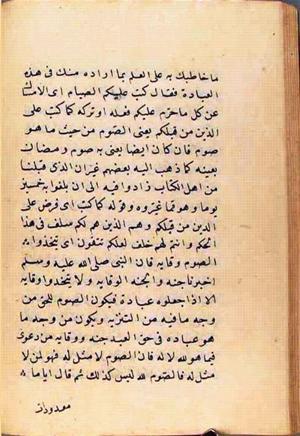 ما خاطبك به على العلم بما اراده منك فى هذه
العبادة فقال كتب عليكم الصيام اى الامساك
عن كل ما حرم عليكم فعله او تركه كما كتب على
الذين من قبلكم يعنى الصوم من حيث ما هو
صوم فان كان ايضا يعنى به صوم رمضان
بعينه كما ذهب اليه بعضهم غير ان الذى قبلنا
من اهل الكتاب زادوا فيه الى ان بلغوا به خمسين
يوما وهو مما غيروه وقوله كما كتب اى فرض على
الذين من قبلكم وهم الذين هم لكم سلف فى هذا
الحكم وانتم لهم خلف لعلكم تتقون اى تتخذوا
الصوم وقاية فان النبى صلى الله عليه وسلم
اخبرنا جنه والجنه الوقاية ولا يتخذوا وقاية
الا اذا جعلوه عبادة فيكون الصوم للحق من
وجه ما فيه من التنزيه ويكون من وجه ما
هو عبادة فى حق العبد جنه ووقاية من دعوى
فيما هو لله لا له فان الصوم لا مثل له فهو لمن لا
مثل له فالصوم لله ليس كذلك ثم قال اياما
معدودات